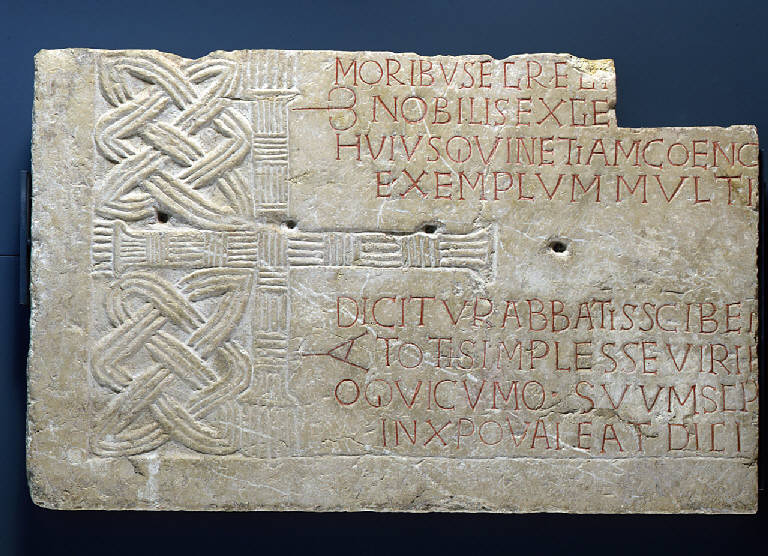 MORIBUSEGREGI
NOBILISEXGE
HUIUSQUINETIAMCOENO
EXEMPLUMMULTI
DICITURABBATISSCIBER
TOTISIMPLESSEVIRI
OQUICUMQ: SUUMSEP
INXPOVALEAT DICI